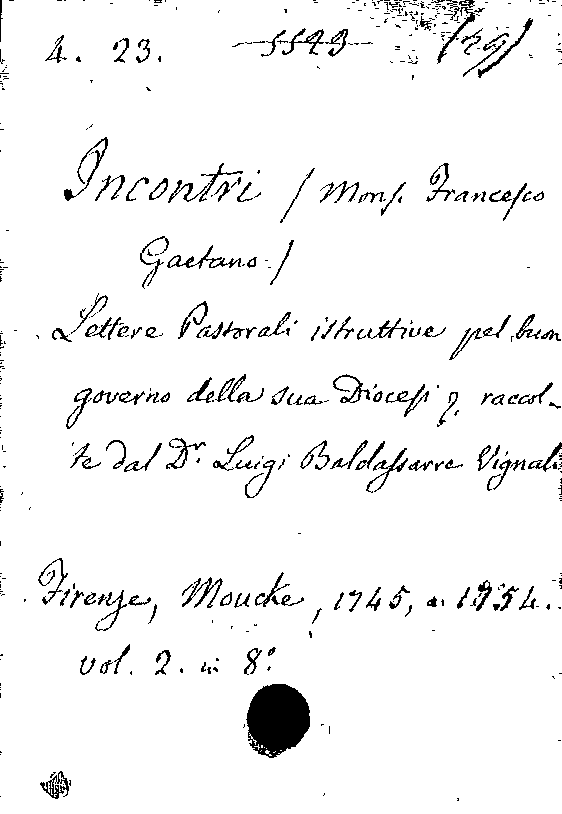 4. 23. 5523 (29)
Incontri / Mons. Francesco
Gaetano. /
Lettere Pastorali istruttive pel buon
governo della sua Diocesi raccol-
te dal Dr. Luigi Baldassarre Vignali
Firenze, Moucke, 1745, a. 1754.
vol. 2. in 8.º